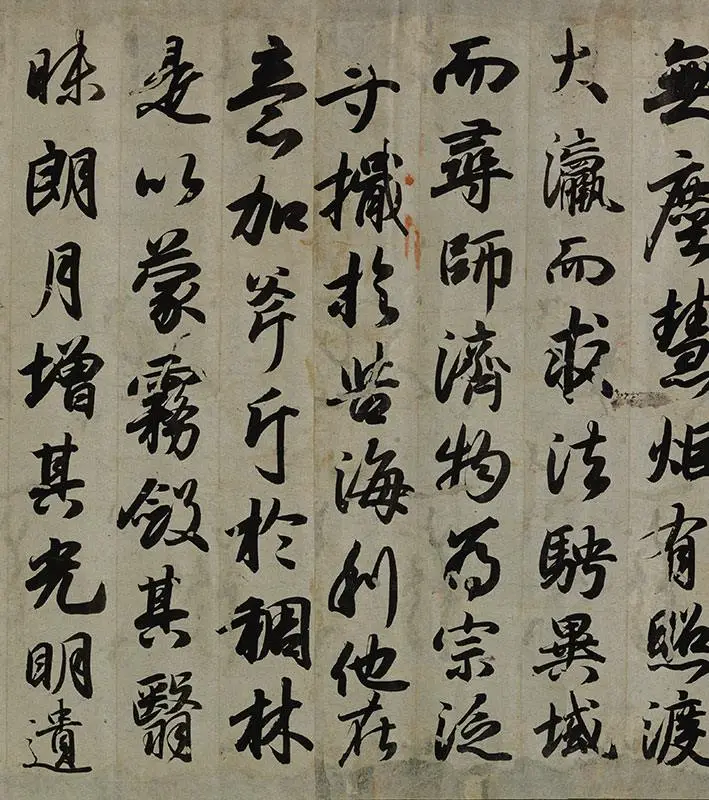 無塵慧炬有照渡
大瀛而求法騁異域
而尋師濟物為宗泛
舟檝於苦海利他在
意加斧斤於稠林
是以蒙霧斂其翳
昧朗月增其光明遺